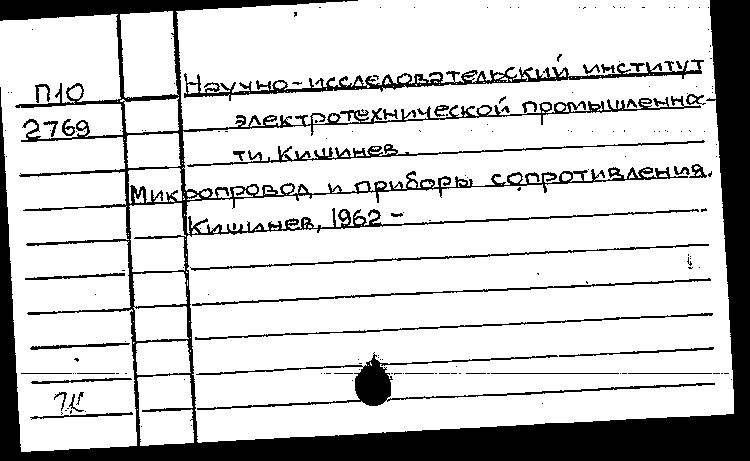 П10
2769
Научно-исследовательский институт
электротехнической промышленнос-
ти, Кишинев.
Микропровод и приборы сопротивления.
Кишинев, 1962 -